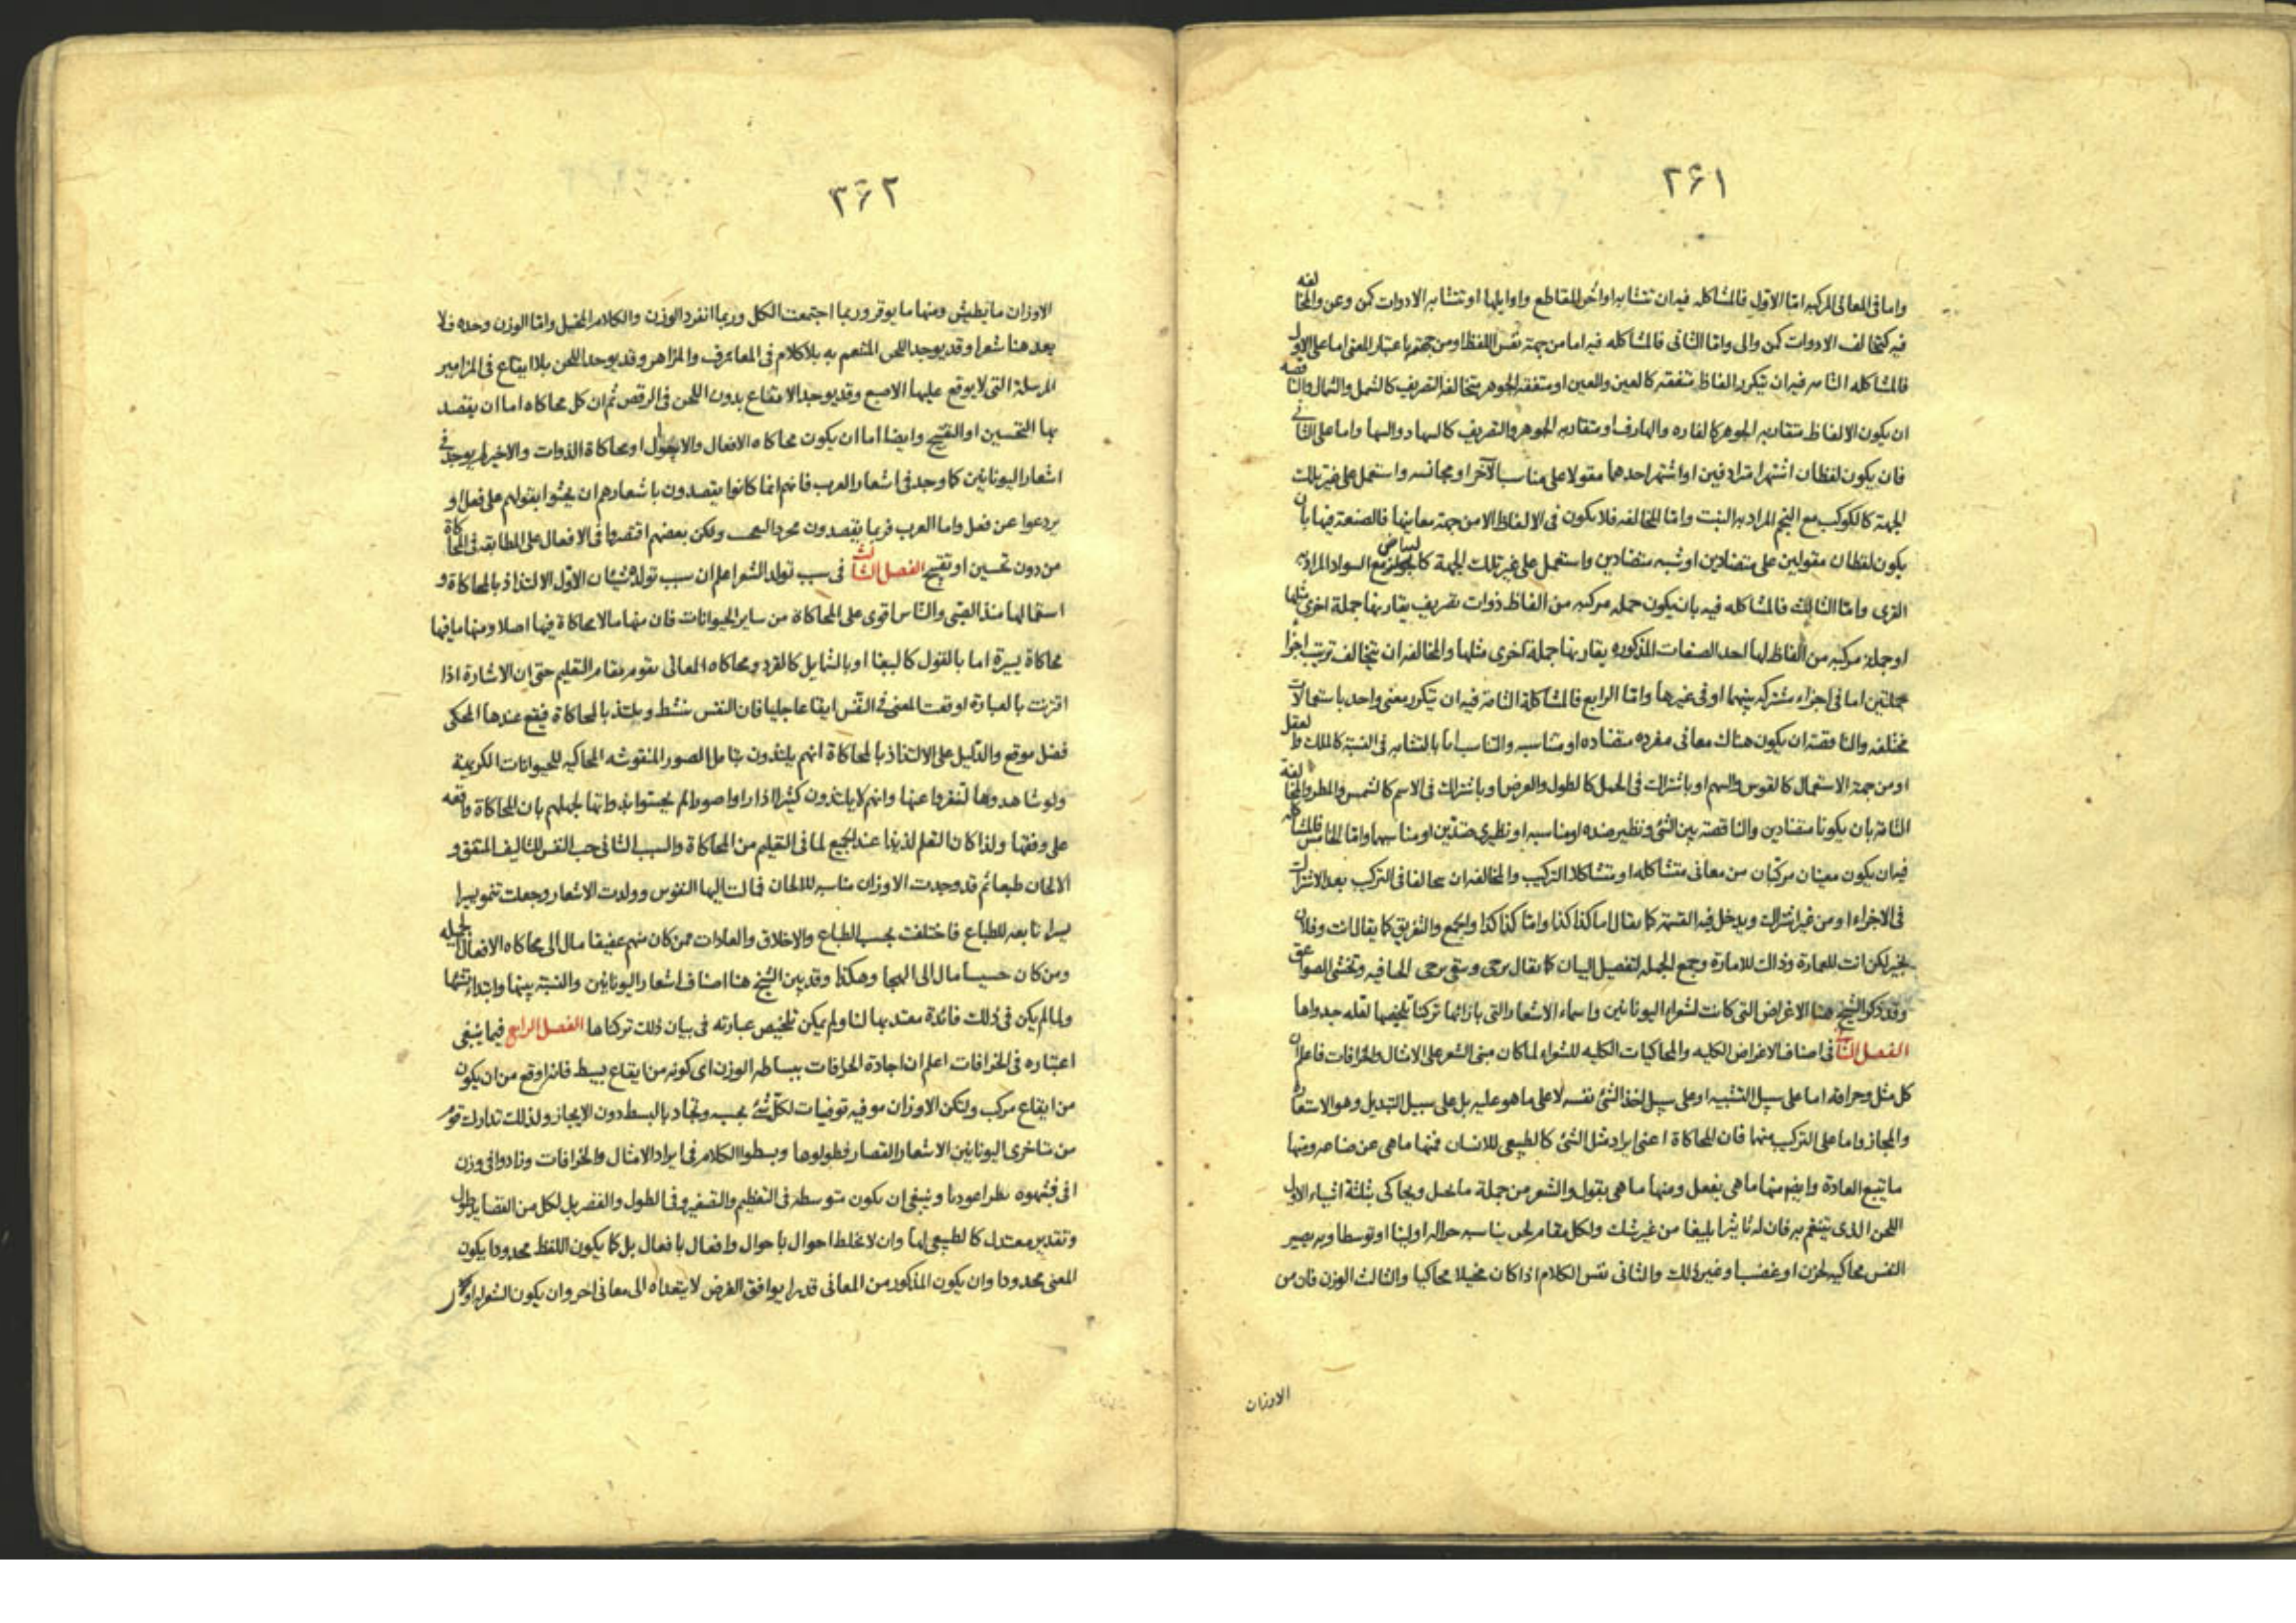 ٢٦١
واما فى المعانى المركبه اما الاول فالمشاكله فيه ان تتشابه اواخر المقاطع واوايلها او تتشابه الادوات كمن وعن والمخالفه
فيه كتخالف الادوات كمن والى واما الثانى فالمشاكله فيه اما من جهة نفس اللفظ او من جهتها باعتبار المعنى اما على الاول
فالمشاكله التامه فيه ان تتكرر الفاظ متفقه كالعين والعين او متفقه الجوهر متخالفه التصريف كالشمل والشمال والناقصه
ان يكون الالفاظ متقاربه الجوهر كالفاره والهارف او متقاربه الجوهر والتصريف كالسهاد والسها واما على الثانى
فان يكون لفظان اشتهرا مترادفين او اشتهر احدهما مقولا على مناسب الآخر او مجانسه واستعمل على غير تلك
الجهة كالكوكب مع النجم المراد به النبت واما المخالفه فلا يكون فى الالفاظ الا من جهة معانيها فالصنعة فيها بان
يكون لفظان مقولين على متضادين او شبه متضادين واستعمل على غير تلك الجهة كالبياض مع السواد المراد به
القرى واما الثالث فالمشاكله فيه بان يكون جمله مركبه من الفاظ ذوات تصريف يقاربها جملة اخرى مثلها
او جملة مركبه من الفاظ لها احد الصفات المذكوره يقاربها جملة اخرى مثلها والمخالفه ان يتخالف ترتيب اجزا
جملتين اما فى اجزاء مشتركه بينهما او فى غيرها واما الرابع فالمشاكلة التامة فيه ان تتكرر معنى واحد باستعمالات
مختلفه والناقصة ان يكون هناك معانى مفرده متضاده او متناسبه والتناسب اما بالتشابه فى النسبة كالملك والعقل
او من جهة الاستعمال كالقوس والسهم او باشتراك فى الحمل كالطول والعرض او باشتراك فى الاسم كالشمس والمطر والمخالفة
التامه بان يكونا متضادين والناقصة بين الشئ ونظير ضده او مناسبه او نظيرى ضدين او مناسبهما واما الخامس فالمشاكله
فيه ان يكون معنيان مركبان من معانى متشاكله او متشاكلا التركيب والمخالفه ان يخالفا فى التركيب بعد الاشتراك
فى الاجزاء او من غير اشتراك ويدخل فيه القسمة كما يقال اما كذا كذا واما كذا كذا والجمع والتفريق كما يقال انت وفلان
بحر لكن انت للعمارة وذاك للامارة وجمع الجمله لتفصيل البيان كما يقال يرجى ويتقى يرجى الحيا فيه وتخشى الصواعق
وقد ذكر الشيخ هنا الاغراض التى كانت لشعراء اليونانيين واسماء الاشعار التى بازائها تركنا تلخيصها لقله جدواها
الفصل الثانى فى اصناف الاغراض الكليه والمحاكيات الكليه للشعراء لما كان مبنى الشعر على الامثال والخرافات فاعلم ان
كل مثل وخرافه اما على سبيل التشبيه او على سبيل اخذ الشئ نفسه لا على ما هو عليه بل على سبيل التبديل وهو الاستعاره
والمجاز واما على التركيب منهما فان المحاكاة اعنى ايراد مثل الشئ كالطبيعى للانسان فمنها ماهى عن صناعه ومنها
ما يتبع العادة وايضا منها ماهى بفعل ومنها ماهى بقول والشعر من جملة ما يخيل ويحاكى بثلثة اشياء الاول
اللحن الذى يتنغم به فان له تاثيرا بليغا من غير شك ولكل مقام لحن يناسبه جزاله او لينا او توسطا وبه يصير
النفس محاكيه لحزن او غضب او غير ذلك والثانى نفس الكلام اذا كان مخيلا محاكيا والثالث الوزن فان من
الاوزان
٣٦٢
الاوزان ما يطيش ومنها ما يوقر وربما اجتمعت الكل وربما انفرد الوزن والكلام المخيل واما الوزن وحده فلا
يعد هنا شعرا وقد يوجد اللحن المتنغم به بلا كلام فى المعازف والمزاهر وقد يوجد اللحن بلا ايقاع فى المزامير
المرسلة التى لا يوقع عليها الاصبع وقد يوجد الايقاع بدون اللحن فى الرقص ثم ان كل محاكاه اما ان يقصد
بها التحسين او التقبيح وايضا اما ان يكون محاكاه الافعال والاحوال او محاكاة الذوات والاخير لم يوجد فى
اشعار اليونانيين كما وجد فى اشعار العرب فانهم انما كانوا يقصدون باشعارهم ان يحثوا بقولهم على فعل او
يردعوا عن فعل واما العرب فربما يقصدون مجرد العجب ولكن بعضهم اقتصروا فى الافعال على المطابقه فى المحاكاة
من دون تحسين او تقبيح الفصل الثالث فى سبب تولد الشعر اعلم ان سبب تولده شيئان الاول الالتذاذ بالمحاكاة و
استعمالها منذ الصبى والناس اقوى على المحاكاة من ساير الحيوانات فان منها ما لا محاكاة فيها اصلا ومنها ما فيها
محاكاة يسيرة اما بالقول كالببغا او بالشمايل كالقرد ومحاكاه المعانى يقوم مقام التعليم حتى ان الاشارة اذا
اقترنت بالعبارة اوقعت المعنى فى النفس ايقاعا جليا فان النفس ينشط ويلتذ بالمحاكاة فيقع عندها المحكى
فضل موقع والدليل على الالتذاذ بالمحاكاة انهم يلتذون بتامل الصور المنقوشه المحاكيه للحيوانات الكريهة
ولو شاهدوها لتنفروا عنها وانهم لا يلتذون كثيرا اذا راوا صورا لم يحسوا بذواتها لجهلهم بان المحاكاة واقعه
على وفقها ولذا كان التعلم لذيذا عند الجميع لما فى التعليم من المحاكاة والسبب الثانى حب النفس للتاليف المتفق و
الالحان طبعا ثم قد وجدت الاوزان مناسبه للالحان فمالت اليها النفوس وولدت الاشعار وجعلت تنمو يسيرا
يسيرا تابعه للطباع فاختلفت بحسب الطباع والاخلاق والعادات فمن كان منهم عفيفا مال الى محاكاه الافعال الجميله
ومن كان خسيسا مال الى الهجا وهكذا وقد بين الشيخ هنا اصناف اشعار اليونانيين والنسبة بينها وابتداء نشئها
ولما لم يكن فى ذلك فائدة معتد بها لنا ولم يكن تلخيص عبارته فى بيان ذلك تركناها الفصل الرابع فيما ينبغى
اعتباره فى الخرافات اعلم ان اجادة الخرافات ببساطه الوزن اى كونه من ايقاع بسيط فانه اوقع من ان يكون
من ايقاع مركب ولتكن الاوزان موفيه توفيات لكل شئ بحسبه وتجاد بالبسط دون الايجاز ولذلك تدارك قوم
من متاخرى اليونانيين الاشعار القصار فطولوها وبسطوا الكلام فى ايراد الامثال والخرافات وزادوا فى وزن
وينبغى ان يكون متوسطه فى التعظيم والتصغير وفى الطول والقصر بل لكل من القصايد طول
وتقدير معتدل كالطبيعى لها وان لا تخلط احوال باحوال وافعال بافعال بل كما يكون اللفظ محدودا يكون
المعنى محدودا وان يكون المذكور من المعانى قدرا يوافق الغرض لا يتعداه الى معانى اخر وان يكون الشعر له اول